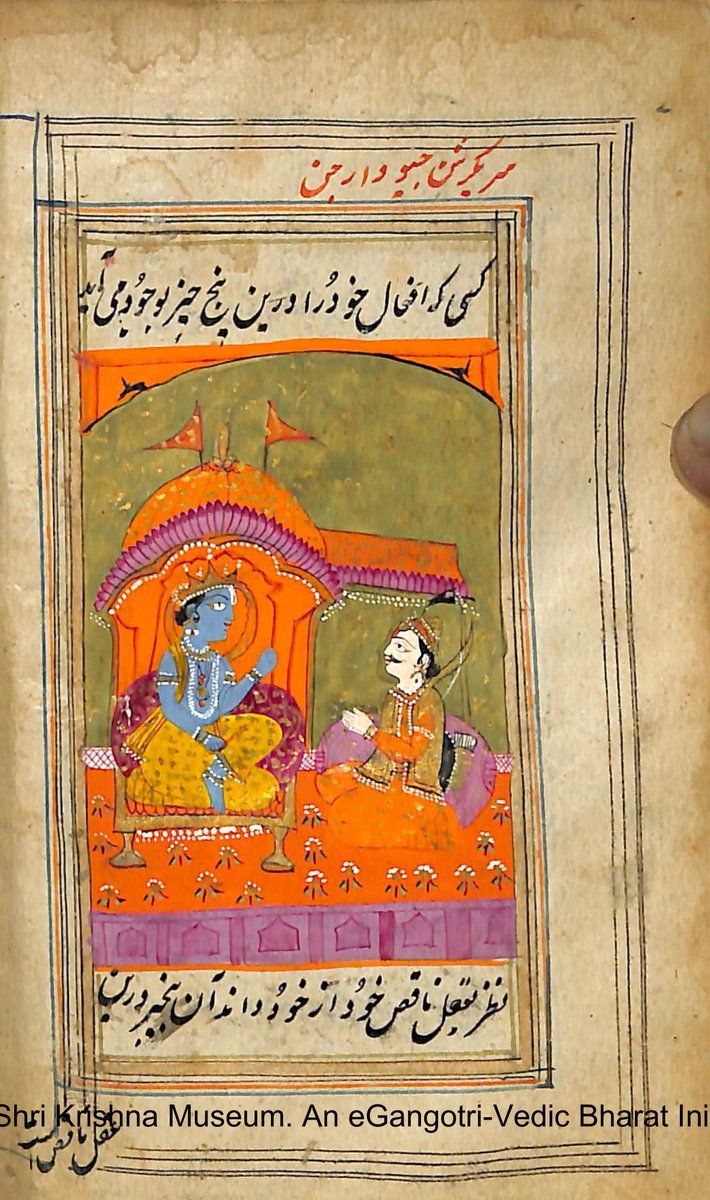 سریکرشن جیو و ارجن
کسی که افعال خود را درین پنج چیز بوجود می آید
نظر بعقل ناقص خود از خود داند آن بیخبر درین
Shri Krishna Museum. An eGangotri-Vedic Bharat Ini
عقل ناقص است